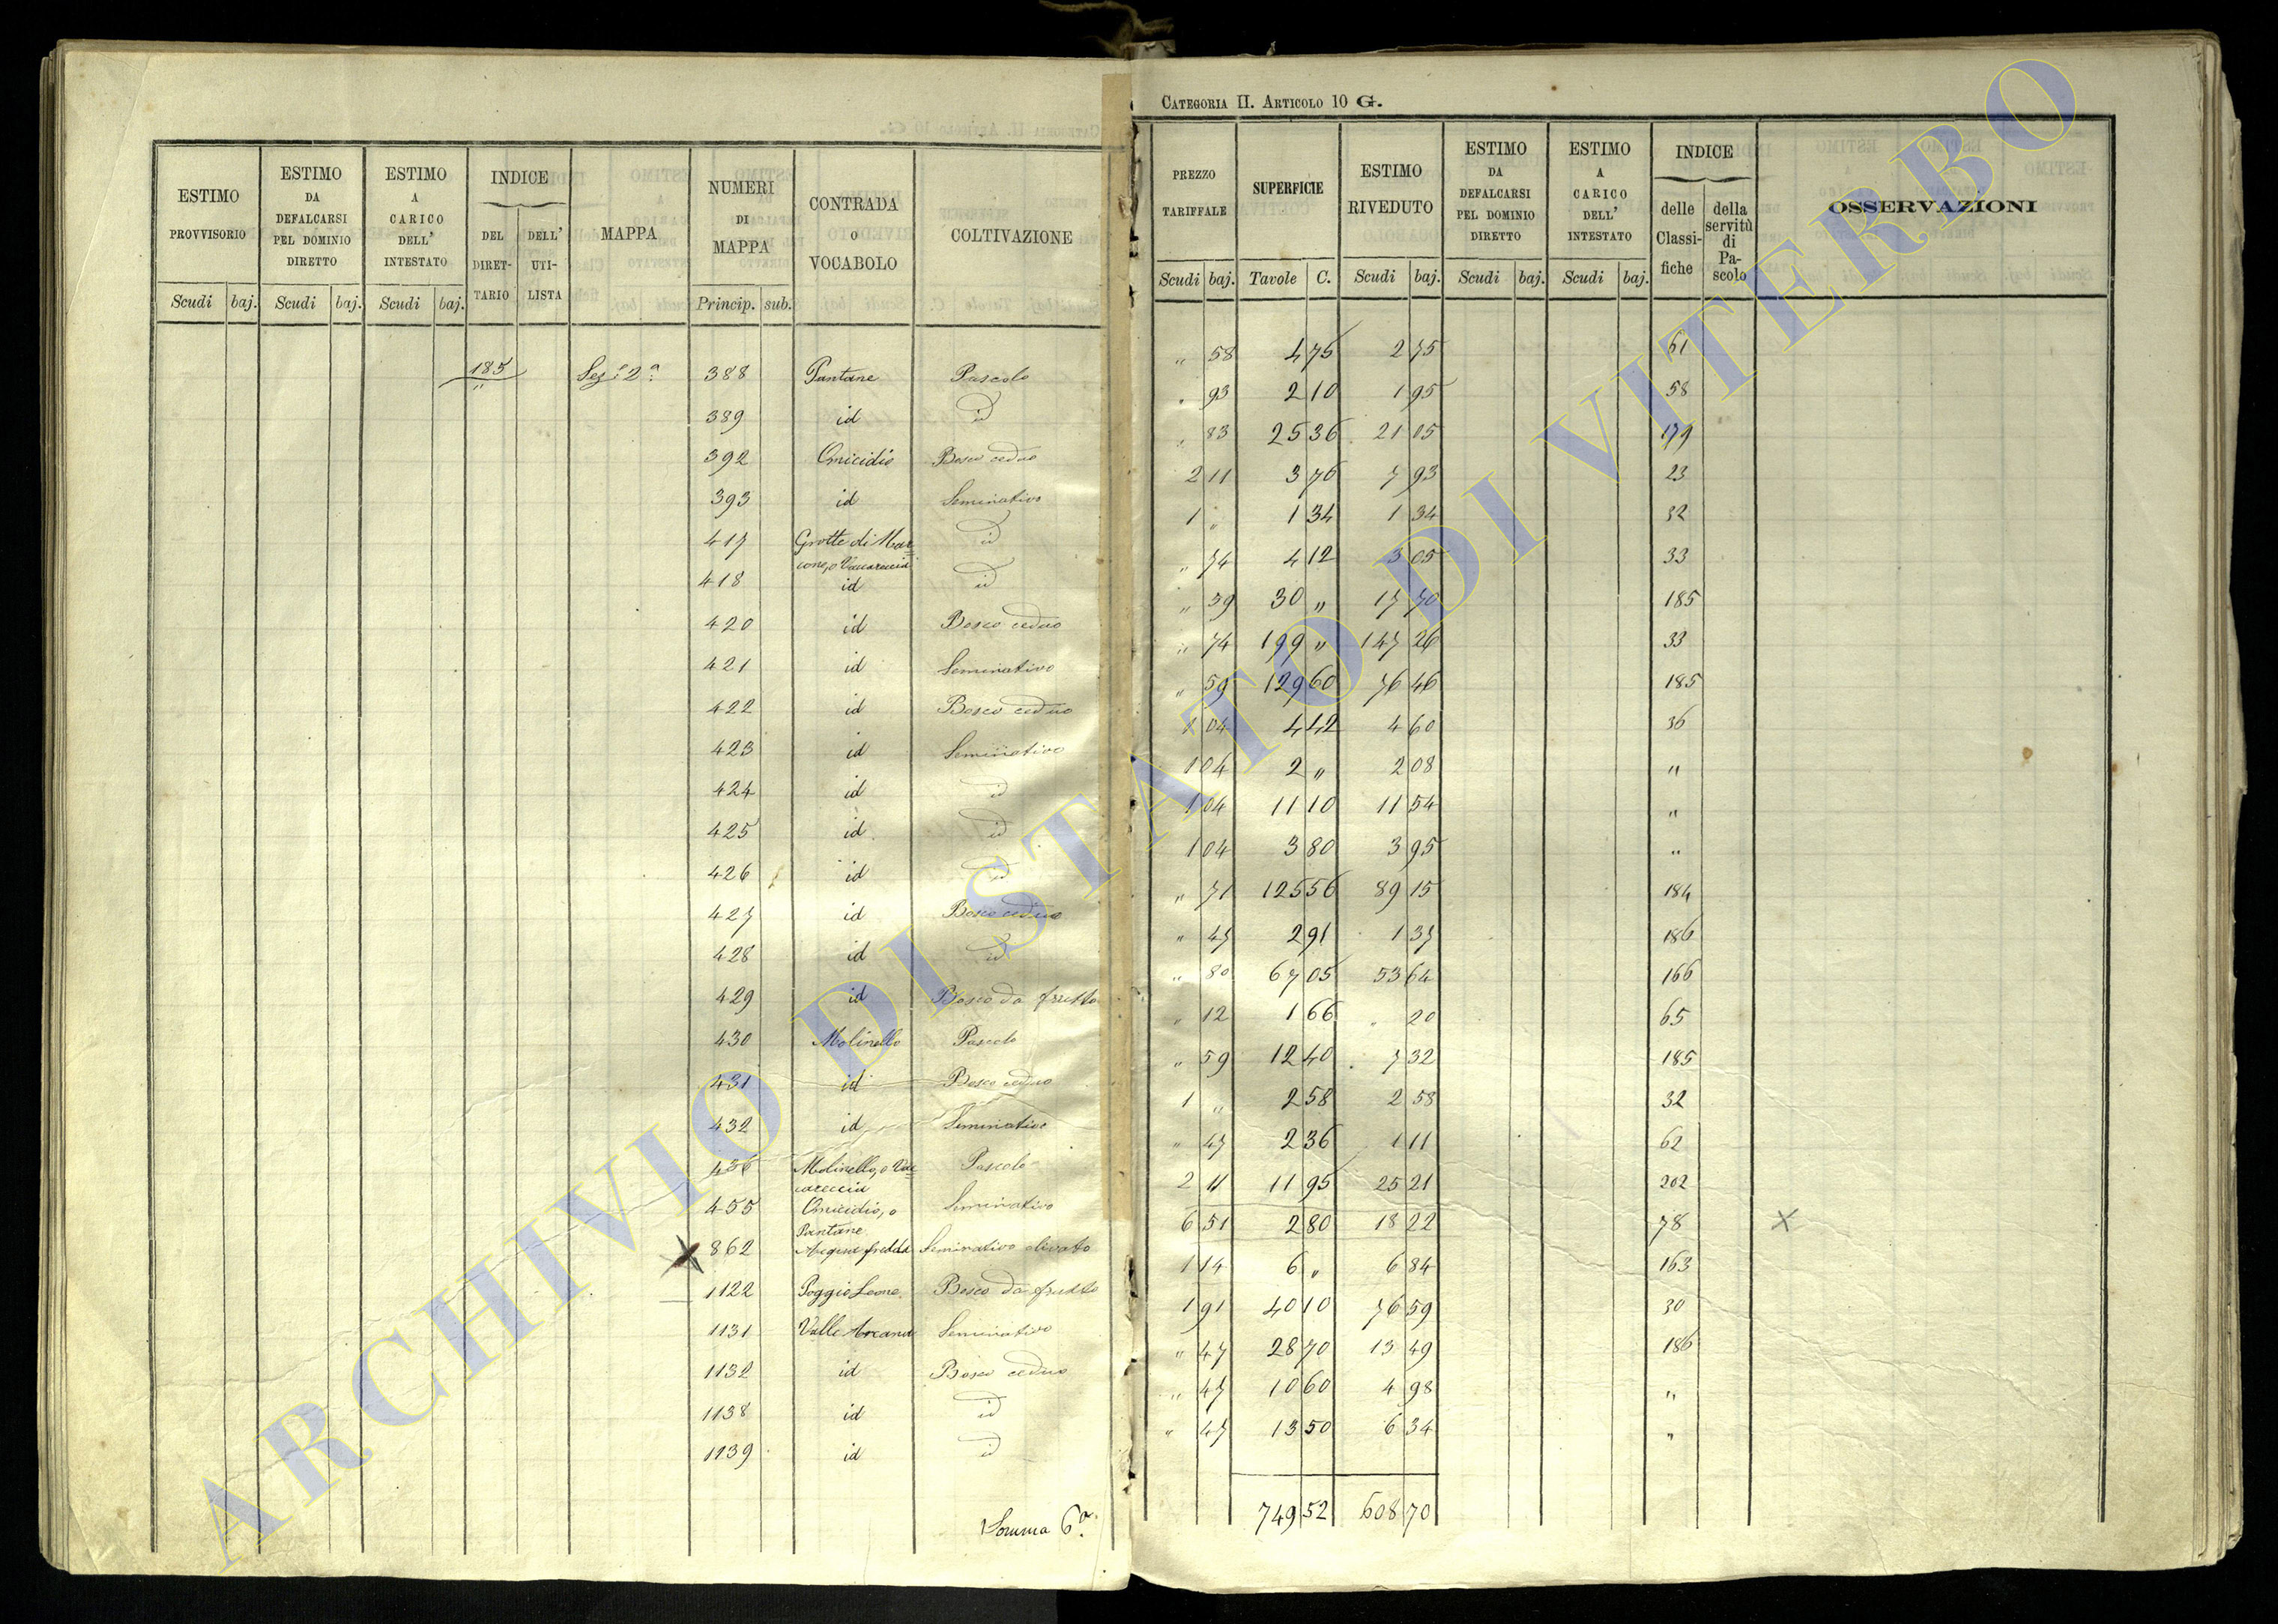 CATEGORIA II. ARTICOLO 10 G.
ESTIMO PROVVISORIO Scudi baj.
ESTIMO DA DEFALCARSI PEL DOMINIO DIRETTO Scudi baj.
ESTIMO A CARICO DELL' INTESTATO Scudi baj.
INDICE DEL DIRET-TARIO DELL' UTI-LISTA
MAPPA
NUMERI DI MAPPA Princip. sub.
CONTRADA O VOCABOLO
COLTIVAZIONE
PREZZO TARIFFALE Scudi baj.
SUPERFICIE Tavole C.
ESTIMO RIVEDUTO Scudi baj.
ESTIMO DA DEFALCARSI PEL DOMINIO DIRETTO Scudi baj.
ESTIMO A CARICO DELL' INTESTATO Scudi baj.
INDICE delle Classi-fiche della servitù di Pa-scolo
OSSERVAZIONI
185 " Sez.e 2a 388 Pantane Pascolo " 58 4 75 2 75 61
389 id id " 93 2 10 1 95 58
392 Omicidio Bosco ceduo " 83 25 36 21 05 179
393 id Seminativo 2 11 3 76 7 93 23
417 Grotte di Mar=
cone, o Vaccareccia id 1 " 1 34 1 34 32
418 id id " 74 4 12 3 05 33
420 id Bosco ceduo " 59 30 " 17 70 185
421 id Seminativo " 74 199 " 147 26 33
422 id Bosco ceduo " 59 129 60 76 46 185
423 id Seminativo 1 04 4 42 4 60 36
424 id id 1 04 2 " 2 08 "
425 id id 1 04 11 10 11 54 "
426 id id 1 04 3 80 3 95 "
427 id Bosco ceduo " 71 125 56 89 15 184
428 id id " 47 2 91 1 37 186
429 id Bosco da frutto " 80 67 05 53 64 166
430 Molinello Pascolo " 12 1 66 " 20 65
431 id Bosco ceduo " 59 12 40 7 32 185
432 id Seminativo 1 " 2 58 2 58 32
436 Molinello, o Vac=
careccia Pascolo " 47 2 36 1 11 62
455 Omicidio, o
Pantane Seminativo 2 11 11 95 25 21 202
862 Acqua fredda Seminativo olivato 6 51 2 80 18 22 78 X
1122 Poggio Leone Bosco da frutto 1 14 6 " 6 84 163
1131 Valle Arcana Seminativo 1 91 40 10 76 59 30
1132 id Bosco ceduo " 47 28 70 13 49 186
1138 id id " 47 10 60 4 98 "
1139 id id " 47 13 50 6 34 "
Somma 6a. 749 52 608 70
ARCHIVIO DI STATO DI VITERBO